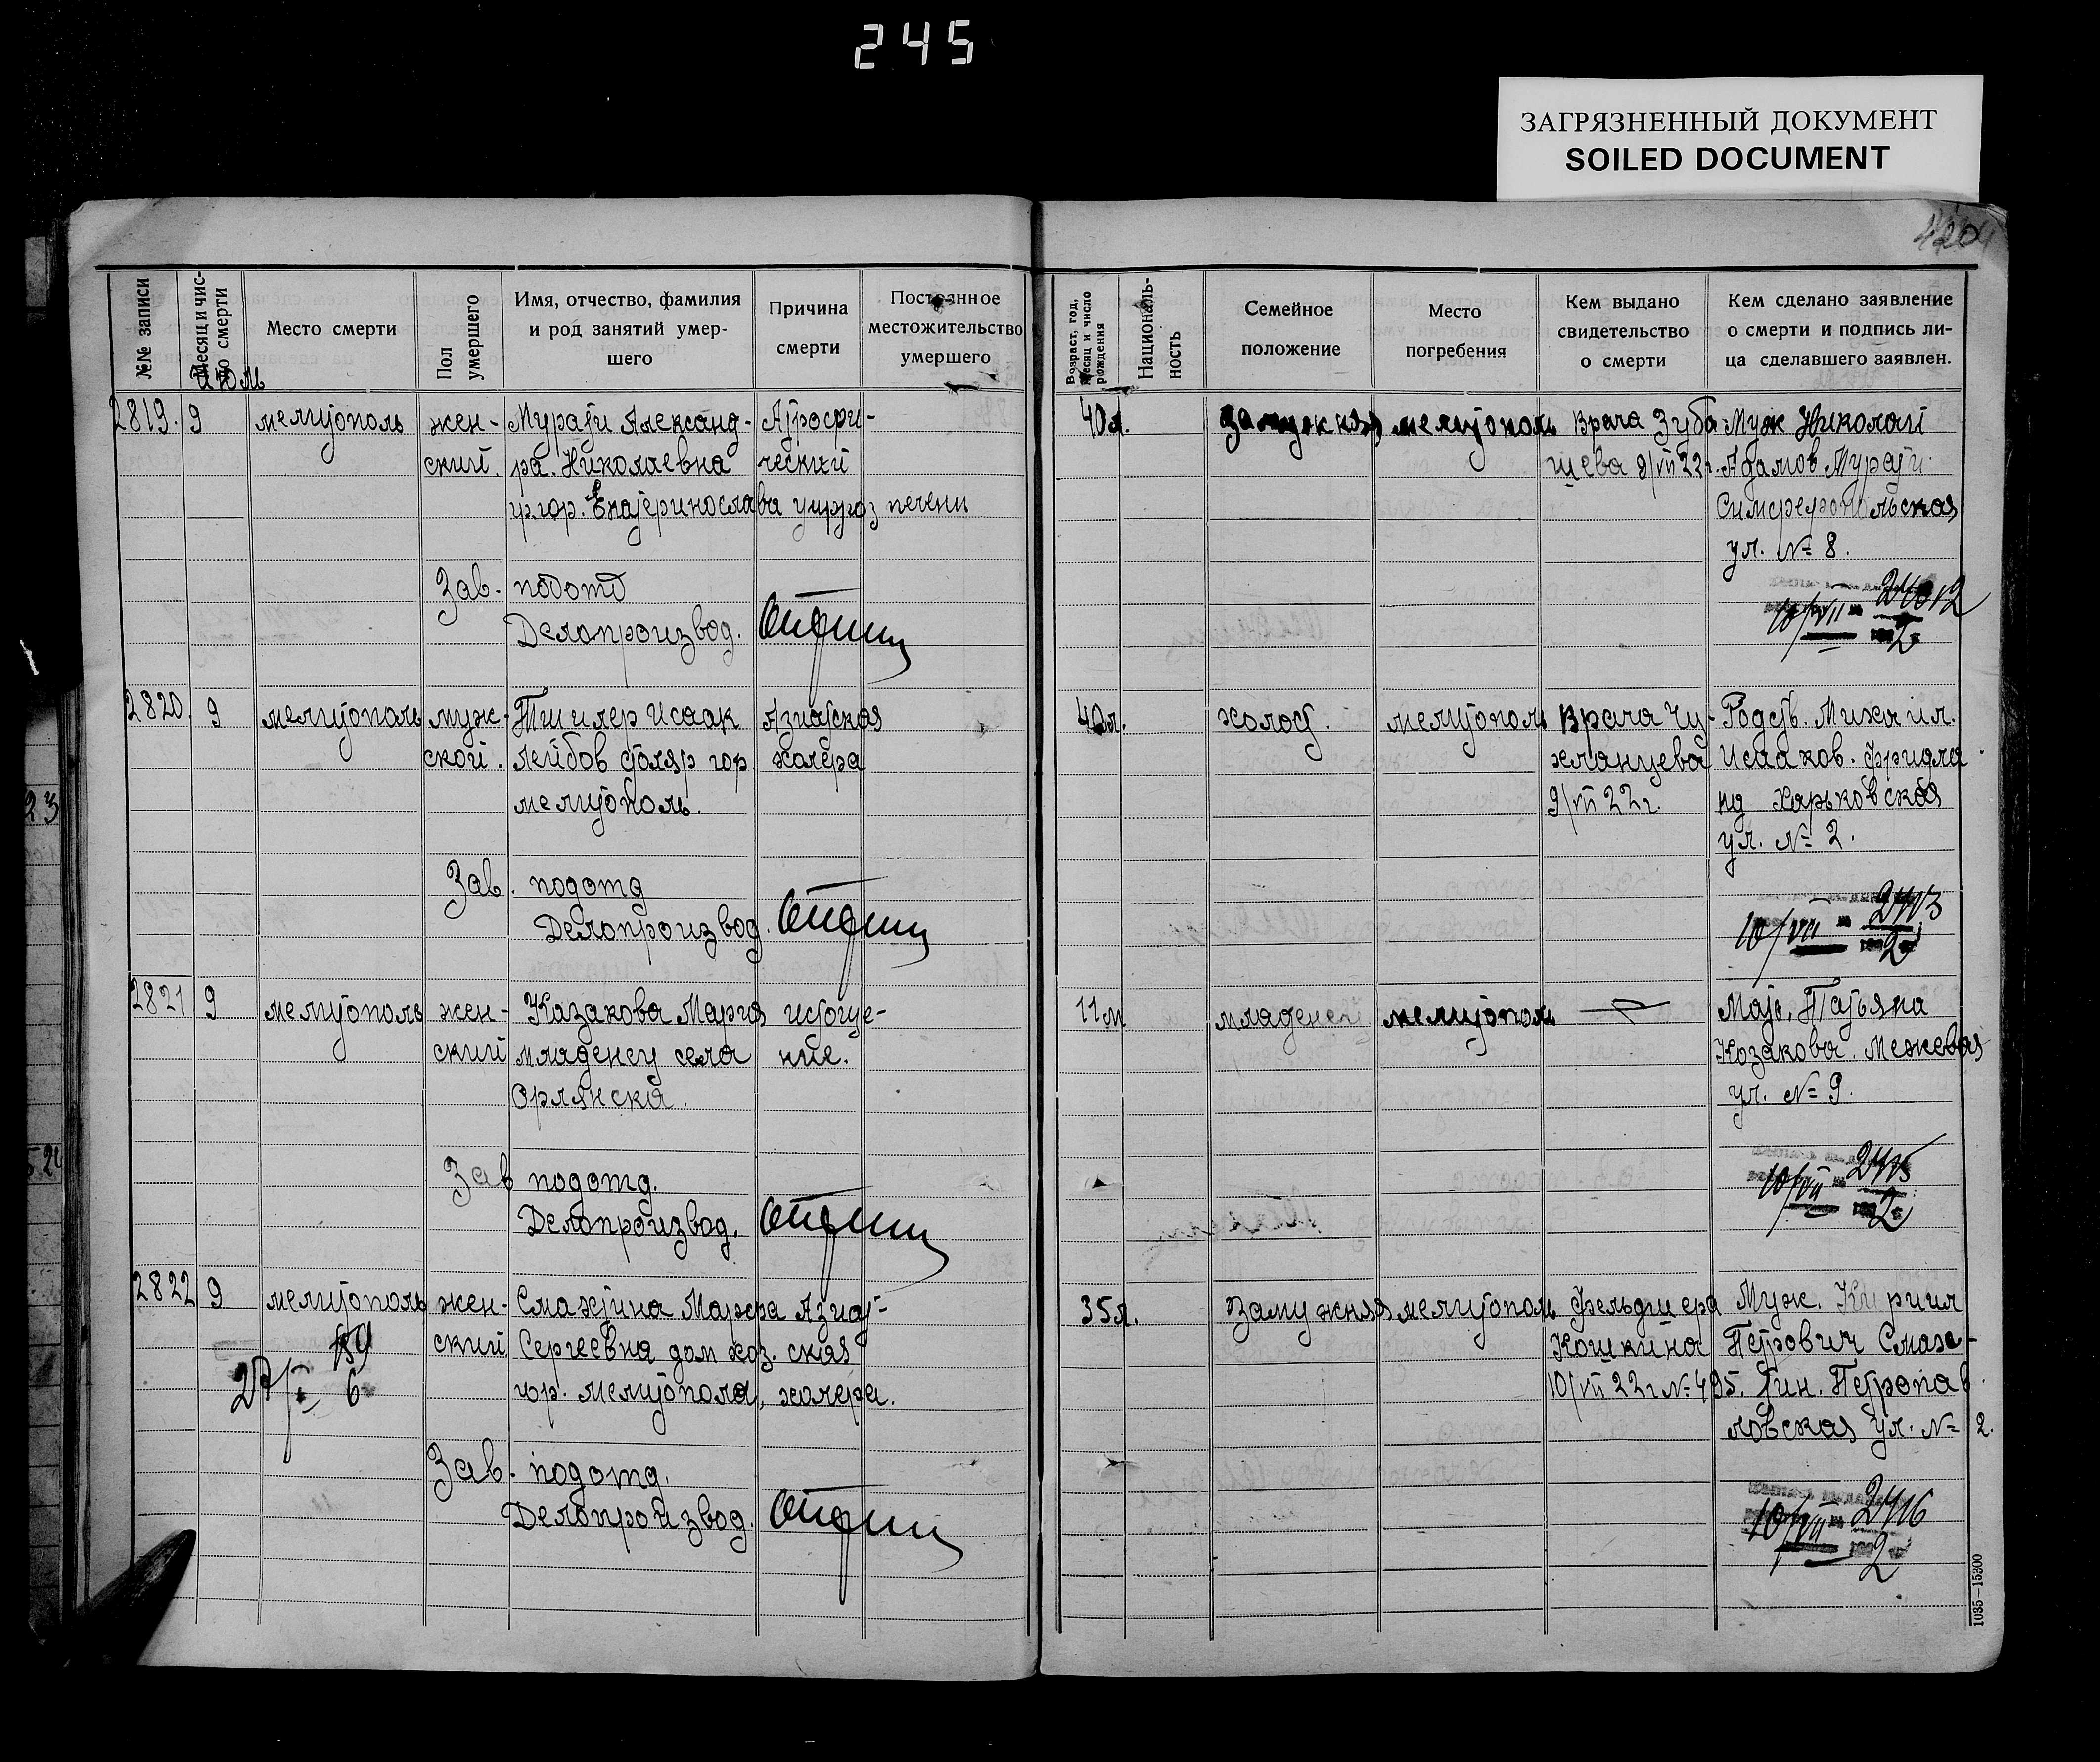 245
ЗАГРЯЗНЕННЫЙ ДОКУМЕНТ
SOILED DOCUMENT
№№ записи
Месяц и чис-
ло смерти
июль
Место смерти
Пол
умершего
Имя, отчество, фамилия
и род занятий умер-
шего
Причина
смерти
Постоянное
местожительство
умершего
Возраст, год,
месяц и число
рождения
Националь-
ность
Семейное
положение
Место
погребения
Кем выдано
свидетельство
о смерти
Кем сделано заявление
о смерти и подпись ли-
ца сделавшего заявлен.
2819. 9 мелитополь жен- Мурати Александ- Атрофи- 40л. замужняя мелитополь Врача Зуба- Муж Николай
ский. ра. Николаевна ческий щева 9/VII 22г. Адамов Мурати.
гр. гор. Екатеринослава цирроз печени Симферопольская
ул. № 8.
Зав. подотд
Делопроизвод.
10/VII 2
2820. 9 мелитополь муж- Тишлер Исаак Азиатская 40л. холост. мелитополь Врача Чу- Родств. Михаил.
ской. Лейбов столяр гор. холера хланцева Исааков. Фридла
мелитополь. 9/VII 22г. нд Харьковская
ул. № 2.
Зав. подотд
Делопроизвод.
10/VII 2413 2
2821 9 мелитополь жен- Казакова Мария истоще- 11м младенец. мелитополь Мать. Татьяна
ский младенец села ние. Козакова. Межевая
Орлянска. ул. № 9.
Зав подотд.
Делопроизвод.
10/VII 2415 2
2822 9 мелитополь жен- Смахтина Марфа Азиат- 35л. Замужняя мелитополь Фельдшера Муж. Кирил
ский Сергеевна дом хоз. ская Кошкина Петрович Смах-
гор. Мелитополя, холера. 10/VII 22г № 495. тин. Петропав
ловская ул. № 2.
Зав. подотд.
Делопроизвод.
10/VII 2416 2
1035-15300